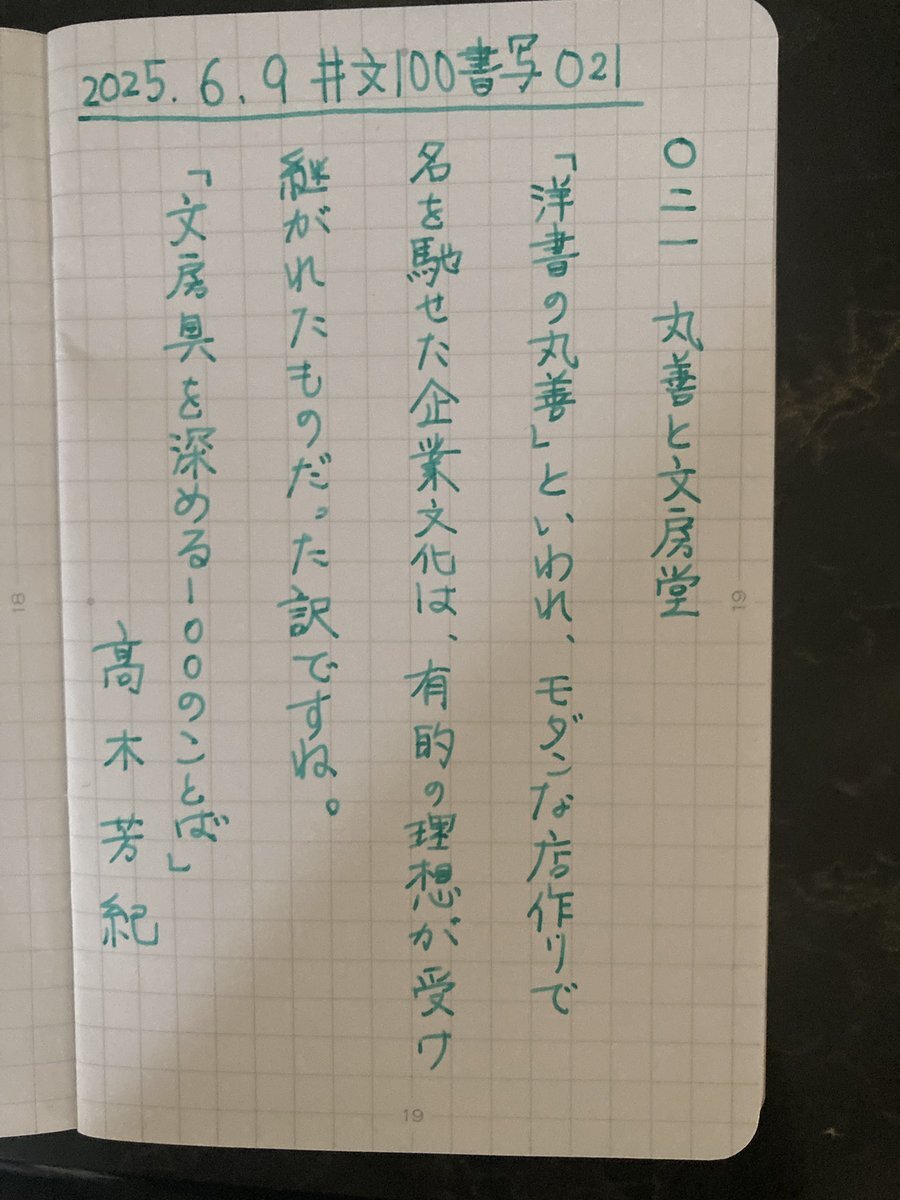 2025.6.9 #文100書写021
〇二一 丸善と文房堂
「洋書の丸善」といわれ、モダンな店作りで
名を馳せた企業文化は、有的の理想が受け
継がれたものだった訳ですね。
「文房具を深める一〇〇のことば」
高木芳紀
18
19
19